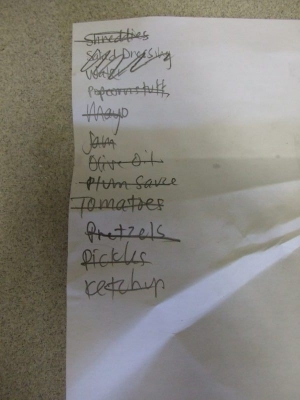 Shreddies
Salad Dressing
Popcorn stuff
Mayo
Jam
Olive Oil
Plum Sauce
Tomatoes
Pretzels
Pickles
Ketchup